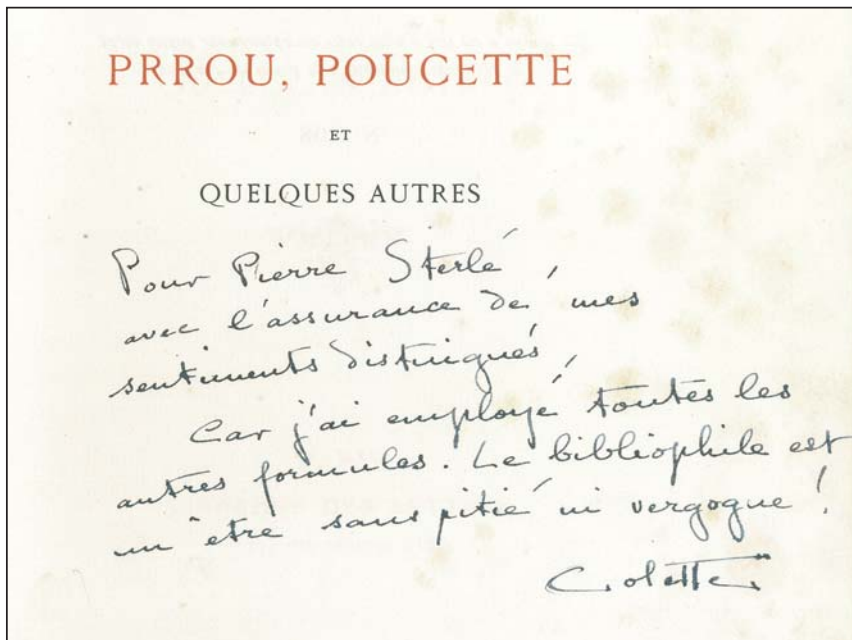 PRROU, POUCETTE
ET
QUELQUES AUTRES
Pour Pierre Sterlé,
avec l'assurance de mes
sentiments distingués,
Car j'ai employé toutes les
autres formules. Le bibliophile est
un être sans pitié ni vergogne !
Colette